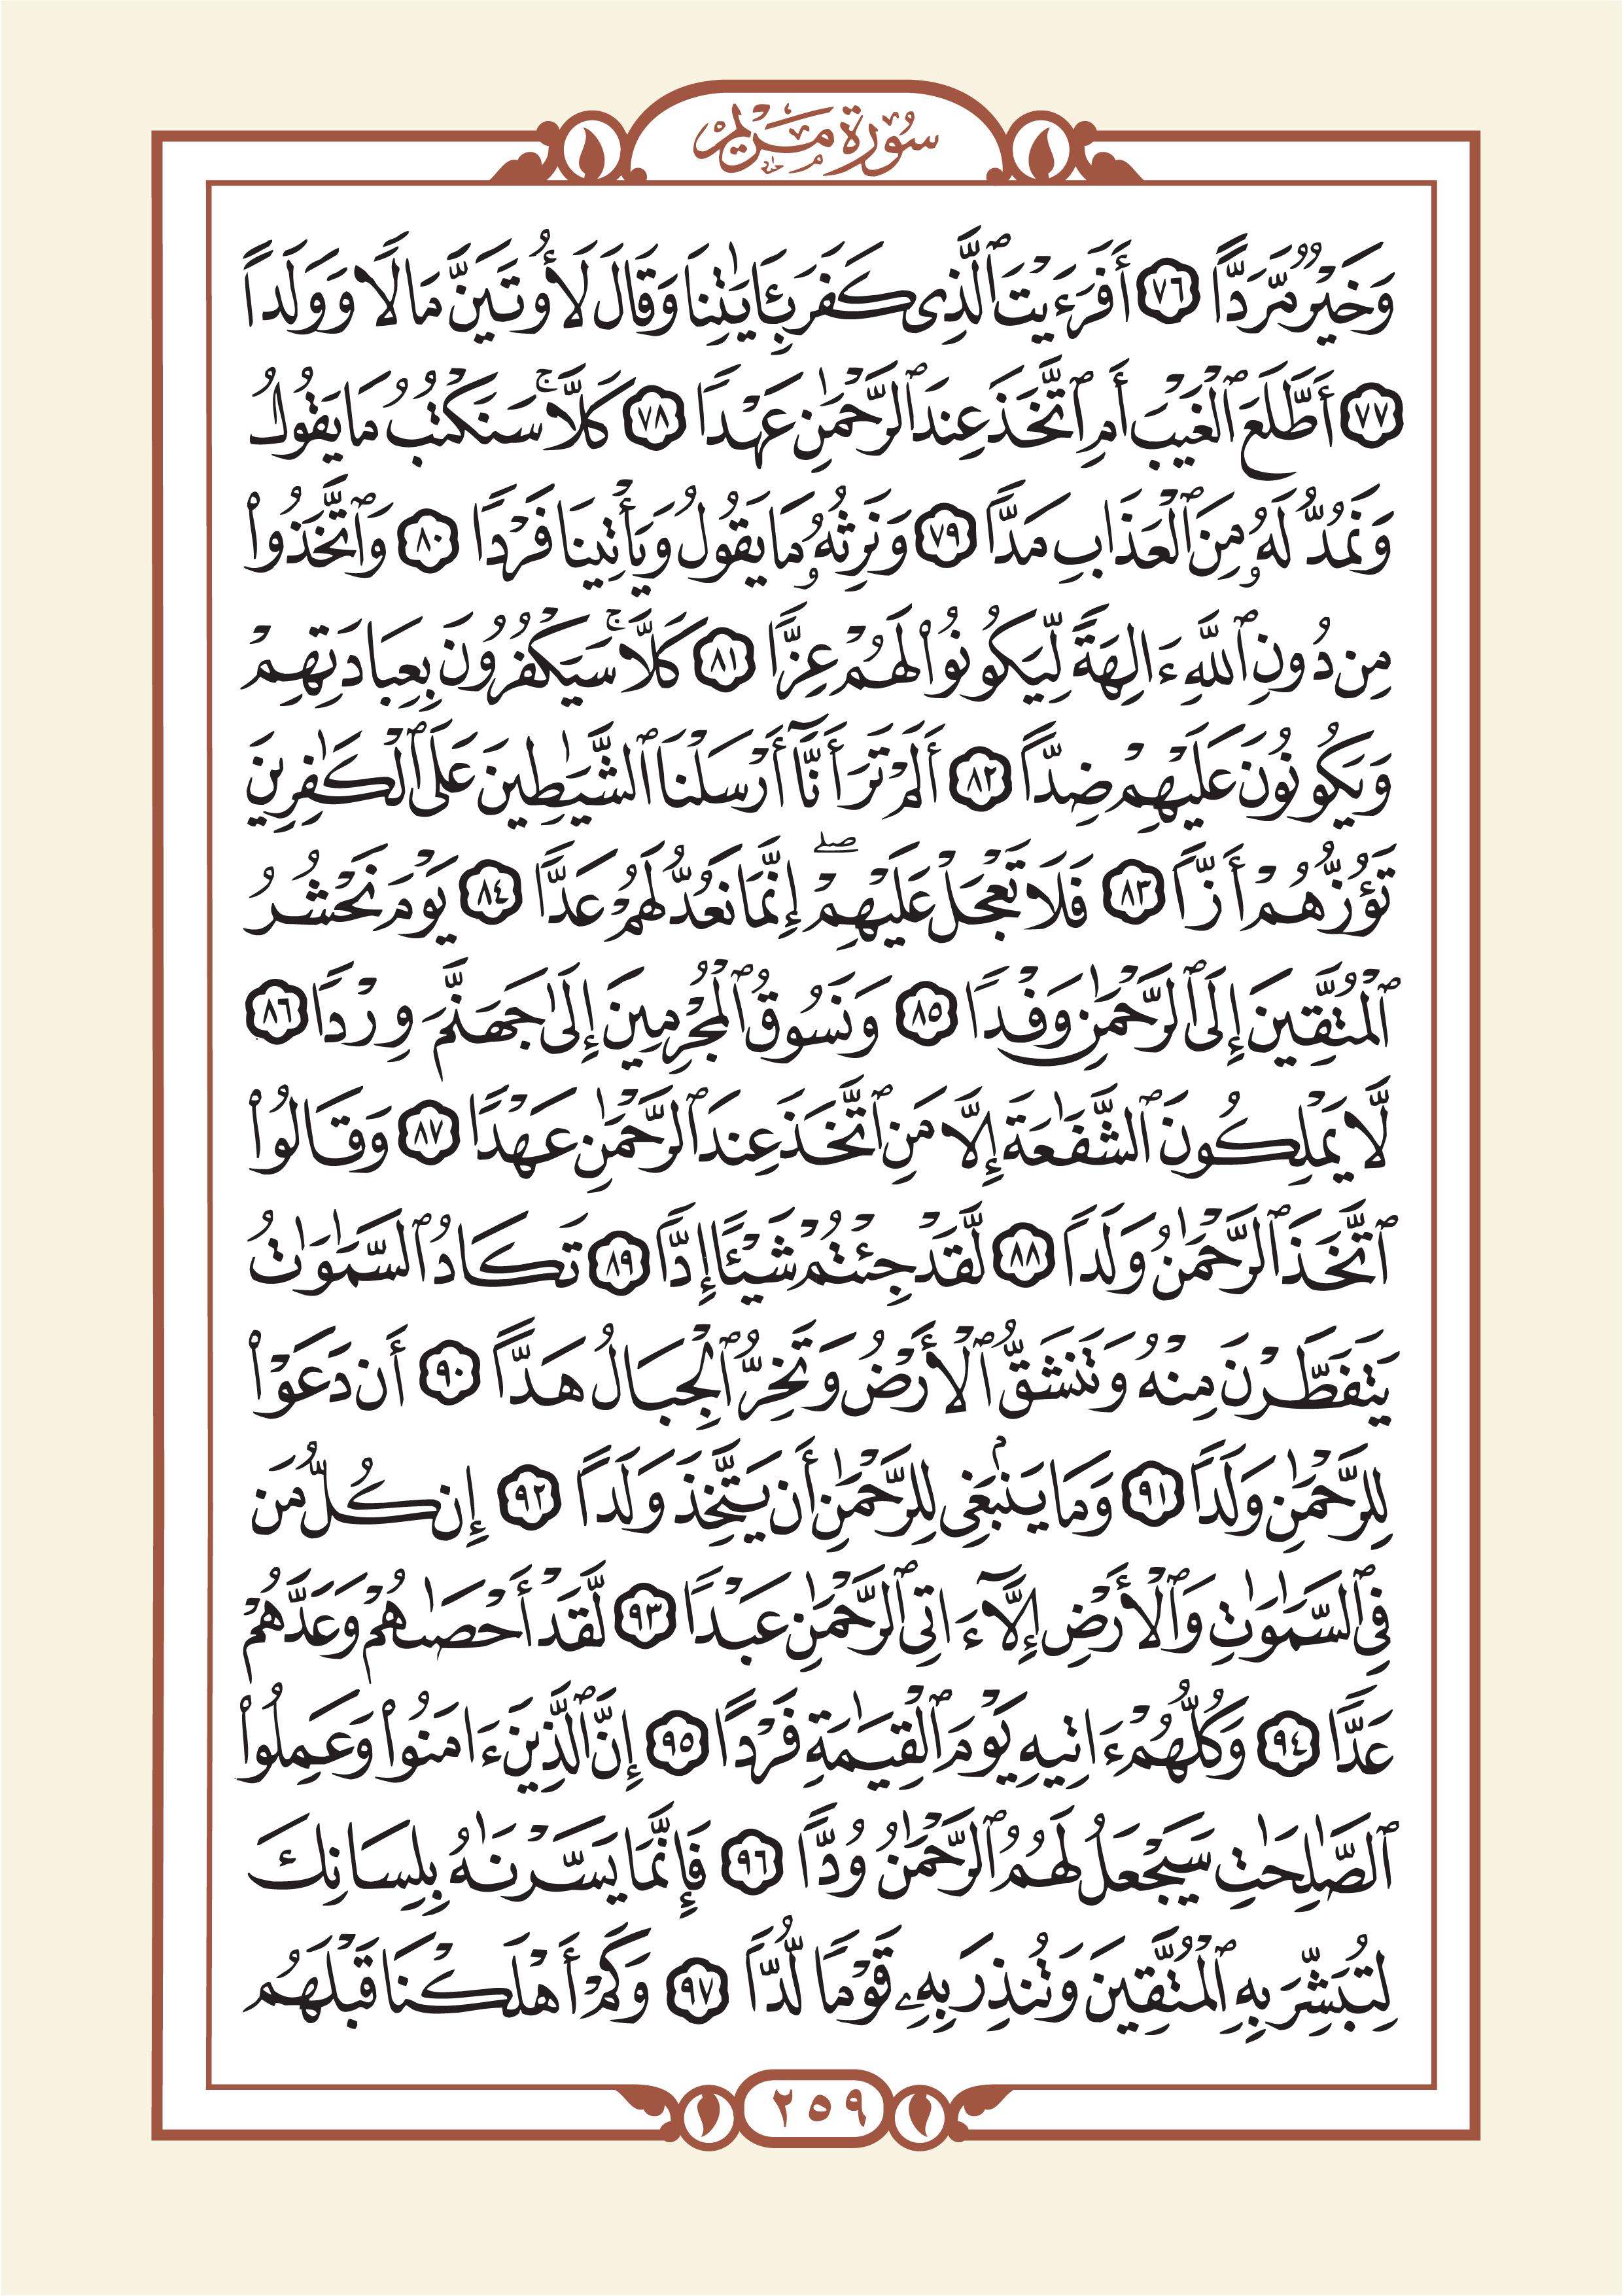 سُورَةُ مَرْيَم
وَخَيْرٌ مَّرَدًّا ٧٦ أَفَرَءَيْتَ ٱلَّذِى كَفَرَ بِـَٔايَٰتِنَا وَقَالَ لَأُوتَيَنَّ مَالًا وَوَلَدًا
٧٧ أَطَّلَعَ ٱلْغَيْبَ أَمِ ٱتَّخَذَ عِندَ ٱلرَّحْمَٰنِ عَهْدًا ٧٨ كَلَّا ۚ سَنَكْتُبُ مَا يَقُولُ
وَنَمُدُّ لَهُۥ مِنَ ٱلْعَذَابِ مَدًّا ٧٩ وَنَرِثُهُۥ مَا يَقُولُ وَيَأْتِينَا فَرْدًا ٨٠ وَٱتَّخَذُوا۟
مِن دُونِ ٱللَّهِ ءَالِهَةً لِّيَكُونُوا۟ لَهُمْ عِزًّا ٨١ كَلَّا ۚ سَيَكْفُرُونَ بِعِبَادَتِهِمْ
وَيَكُونُونَ عَلَيْهِمْ ضِدًّا ٨٢ أَلَمْ تَرَ أَنَّآ أَرْسَلْنَا ٱلشَّيَٰطِينَ عَلَى ٱلْكَٰفِرِينَ
تَؤُزُّهُمْ أَزًّا ٨٣ فَلَا تَعْجَلْ عَلَيْهِمْ ۖ إِنَّمَا نَعُدُّ لَهُمْ عَدًّا ٨٤ يَوْمَ نَحْشُرُ
ٱلْمُتَّقِينَ إِلَى ٱلرَّحْمَٰنِ وَفْدًا ٨٥ وَنَسُوقُ ٱلْمُجْرِمِينَ إِلَىٰ جَهَنَّمَ وِرْدًا ٨٦
لَّا يَمْلِكُونَ ٱلشَّفَٰعَةَ إِلَّا مَنِ ٱتَّخَذَ عِندَ ٱلرَّحْمَٰنِ عَهْدًا ٨٧ وَقَالُوا۟
ٱتَّخَذَ ٱلرَّحْمَٰنُ وَلَدًا ٨٨ لَّقَدْ جِئْتُمْ شَيْـًٔا إِدًّا ٨٩ تَكَادُ ٱلسَّمَٰوَٰتُ
يَتَفَطَّرْنَ مِنْهُ وَتَنشَقُّ ٱلْأَرْضُ وَتَخِرُّ ٱلْجِبَالُ هَدًّا ٩٠ أَن دَعَوْا۟
لِلرَّحْمَٰنِ وَلَدًا ٩١ وَمَا يَنۢبَغِى لِلرَّحْمَٰنِ أَن يَتَّخِذَ وَلَدًا ٩٢ إِن كُلُّ مَن
فِى ٱلسَّمَٰوَٰتِ وَٱلْأَرْضِ إِلَّآ ءَاتِى ٱلرَّحْمَٰنِ عَبْدًا ٩٣ لَّقَدْ أَحْصَىٰهُمْ وَعَدَّهُمْ
عَدًّا ٩٤ وَكُلُّهُمْ ءَاتِيهِ يَوْمَ ٱلْقِيَٰمَةِ فَرْدًا ٩٥ إِنَّ ٱلَّذِينَ ءَامَنُوا۟ وَعَمِلُوا۟
ٱلصَّٰلِحَٰتِ سَيَجْعَلُ لَهُمُ ٱلرَّحْمَٰنُ وُدًّا ٩٦ فَإِنَّمَا يَسَّرْنَٰهُ بِلِسَانِكَ
لِتُبَشِّرَ بِهِ ٱلْمُتَّقِينَ وَتُنذِرَ بِهِۦ قَوْمًا لُّدًّا ٩٧ وَكَمْ أَهْلَكْنَا قَبْلَهُم
٢٥٩